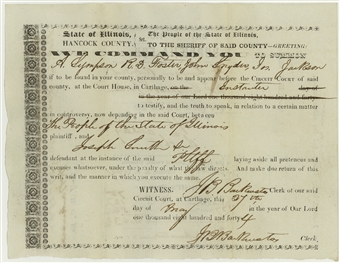 State of Illinois, The People of the State of Illinois,
HANCOCK COUNTY. ss. TO THE SHERIFF OF SAID COUNTY—GREETING:
WE COMMAND YOU TO SUMMON
A Sympson R D Foster John Snyder Jos Jackson
if to be found in your county, personally to be and appear before the CIRCUIT COURT of said
county, at the Court House, in Carthage, on the Instanter day of
in the year of our Lord one thousand eight hundred and
to testify, and the truth to speak, in relation to a certain matter
in controversy, now depending in the said Court, between
The People of the State of Illinois
plaintiff, and
Joseph Smith
defendant at the instance of the said Plff laying aside all pretences and
excuses whatsoever, under the penalty of what the law directs. And make due return of this
writ, and the manner in which you execute the same.
WITNESS. J B Backenstos Clerk of our said
Circuit Court, at Carthage, this 27th
day of May in the year of Our Lord
one thousand eight hundred and forty 4
J B Backenstos Clerk.